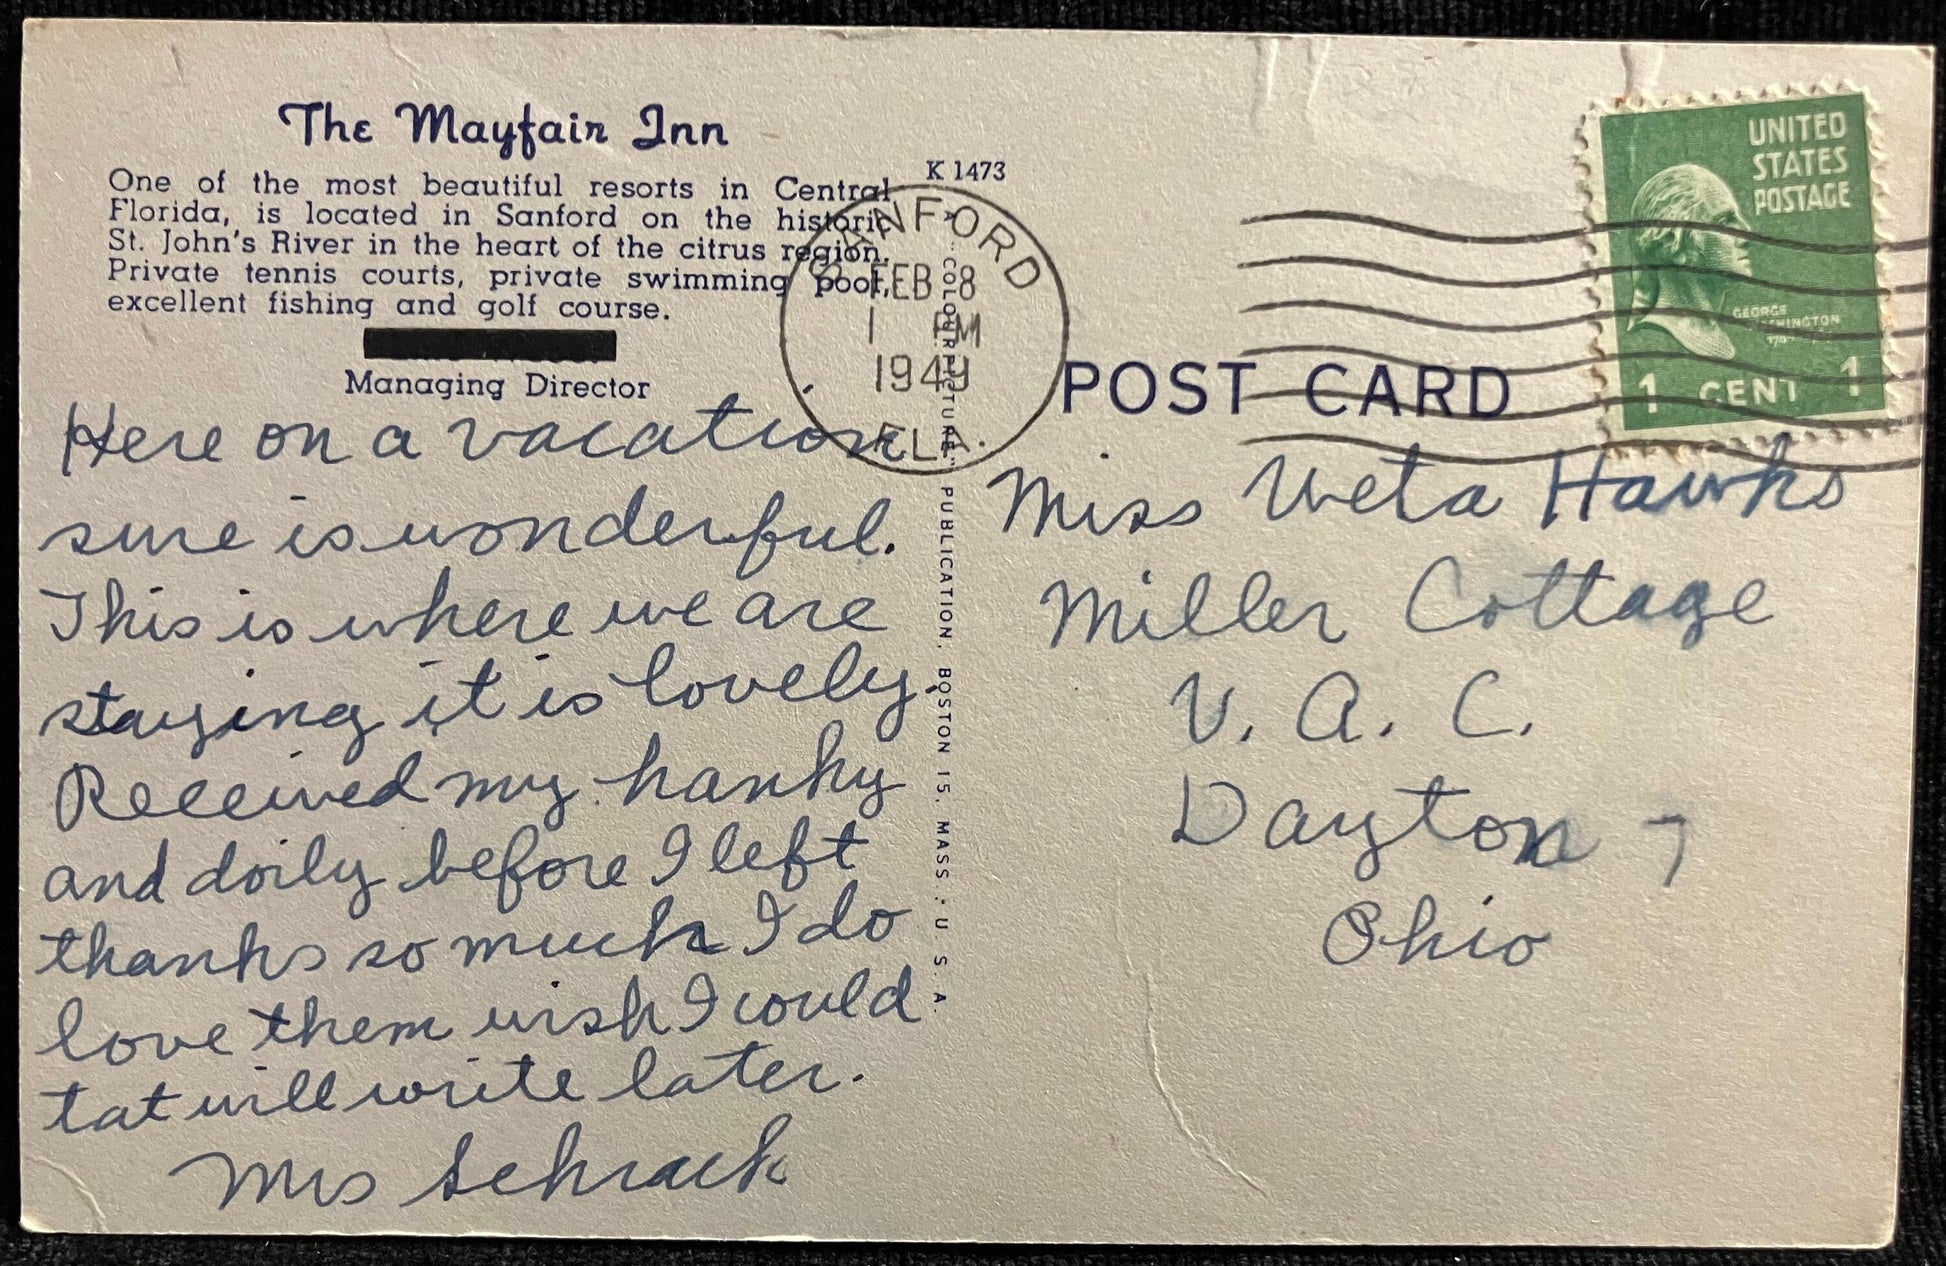 The Mayfair Inn
One of the most beautiful resorts in Central
Florida, is located in Sanford on the historic
St. John's River in the heart of the citrus region.
Private tennis courts, private swimming pool,
excellent fishing and golf course.
Managing Director
Here on a vacation
sure is wonderful.
This is where we are
staying it is lovely.
Received my hanky
and doily before I left
thanks so much I do
love them wish I could
tat will write later.
Mrs Schrack
K 1473
A "COLOURPICTURE" PUBLICATION, BOSTON 15, MASS., U.S.A.
SANFORD
FEB 8
1 PM
1949
FLA.
POST CARD
UNITED
STATES
POSTAGE
GEORGE
WASHINGTON
1 CENT 1
Miss Uveta Hawks
Miller Cottage
V. A. C.
Dayton 7
Ohio